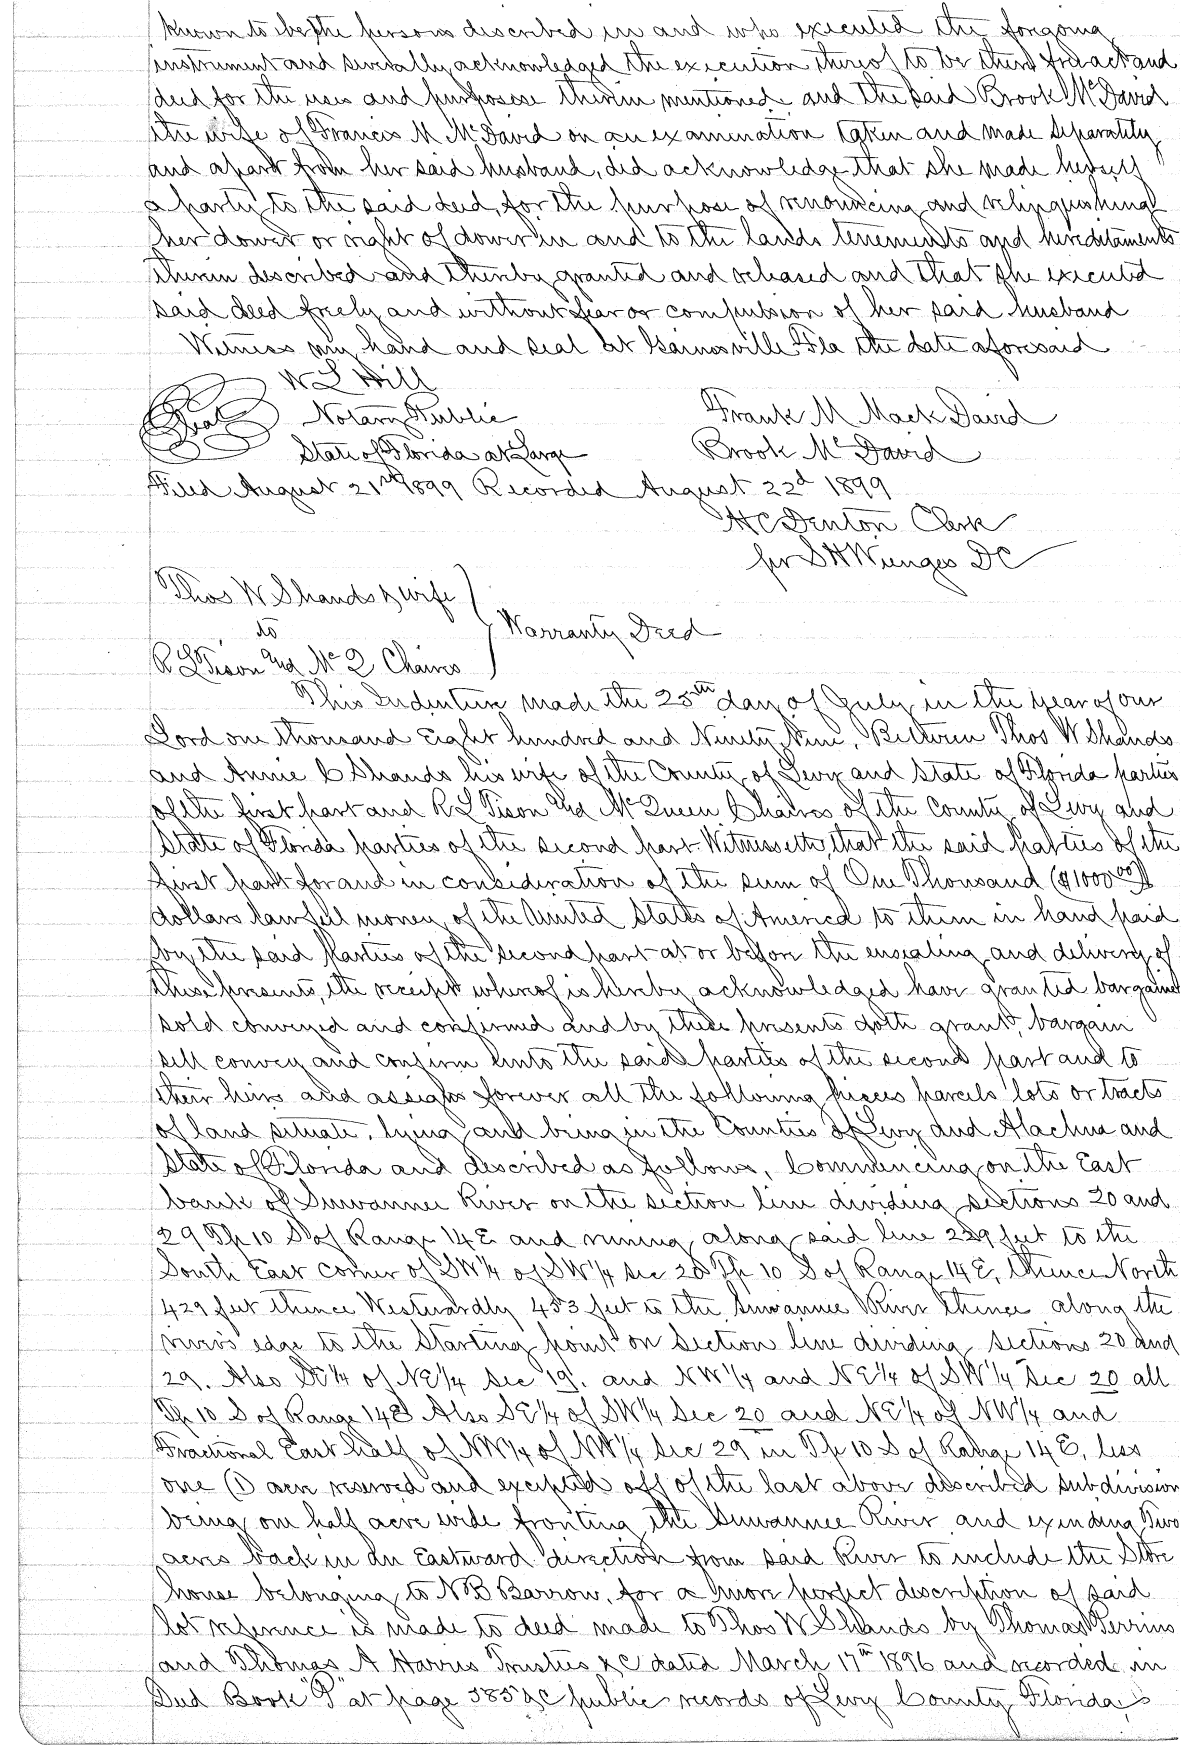 Known to be the persons described in and who executed the forgoing
instrument and severally acknowledged the execution thereof to be their free act and
deed for the uses and purposese therein mentioned and the said Brook McDavid
the wife of Francis M McDavid on an examination taken and made separately
and apart from her said husband, did acknowledge that she made herself
a party to the said deed, for the purpose of renouncing and relinquishing
her dower or right of dower in and to the lands tenements and hereditaments
therein described and thereby granted and released and that she executed
said deed freely and without fear or compulsion of her said husband
Witness my hand and seal at Gainesville Fla the date aforesaid
W L Hill
Seal Notary Public Frank M Mack David
State of Florida at Large Brook McDavid
Filed August 21st 1899 Recorded August 22d 1899
H C Denton Clerk
per S H Wienges DC
Thos W Shands & wife
to Warranty Deed
R L Tison and Mc Q Chaires
This Indenture made the 25th day of July in the year of our
Lord one thousand Eight hundred and Ninety Nine, Between Thos W Shands
and Annie C Shands his wife of the County of Levy and State of Florida parties
of the first part and R L Tison and McQueen Chaires of the County of Levy and
State of Florida parties of the second part Witnesseth, that the said parties of the
first part for and in consideration of the sum of One Thousand ($1000.00)
dollars lawful money of the United States of America to them in hand paid
by the said Parties of the second part at or before the ensealing and delivery of
these presents, the receipt whereof is hereby acknowledged have granted bargained
sold conveyed and confirmed and by these presents doth grant, bargain
sell convey and confirm unto the said parties of the second part and to
their heirs and assigns forever all the following pieces parcels lots or tracts
of land situate, lying and being in the Counties of Levy and Alachua and
State of Florida and described as follows, Commencing on the East
bank of Suwannee River on the section line dividing sections 20 and
29 Tp 10 S of Range 14 E and runing along said line 229 feet to the
South East corner of SW 1/4 of SW 1/4 sec 20 Tp 10 S of Range 14 E, thence North
429 feet thence Westwardly 453 feet to the Suwannee River thence along the
river's edge to the Starting point on Section line dividing sections 20 and
29. Also SE 1/4 of NE 1/4 Sec 19. and NW 1/4 and NE 1/4 of SW 1/4 Sec 20 all
Tp 10 S of Range 14 E Also SE 1/4 of SW 1/4 Sec 20 and NE 1/4 of NW 1/4 and
Fractional East half of NW 1/4 of NW 1/4 Sec 29 in Tp 10 S of Range 14 E, less
one (1) acre reserved and excepted off of the last above described subdivision
being one half acre wide fronting the Suwannee River and exending Two
acres back in an Eastward direction from said River to include the Store
house belonging to N B Barrow, for a more perfect description of said
lot reference is made to deed made to Thos W Shands by Thomas Perrins
and Thomas A Harris Trustees &c dated March 17th 1896 and recorded in
Deed Book "P" at page 585 &c public records of Levy County Florida,